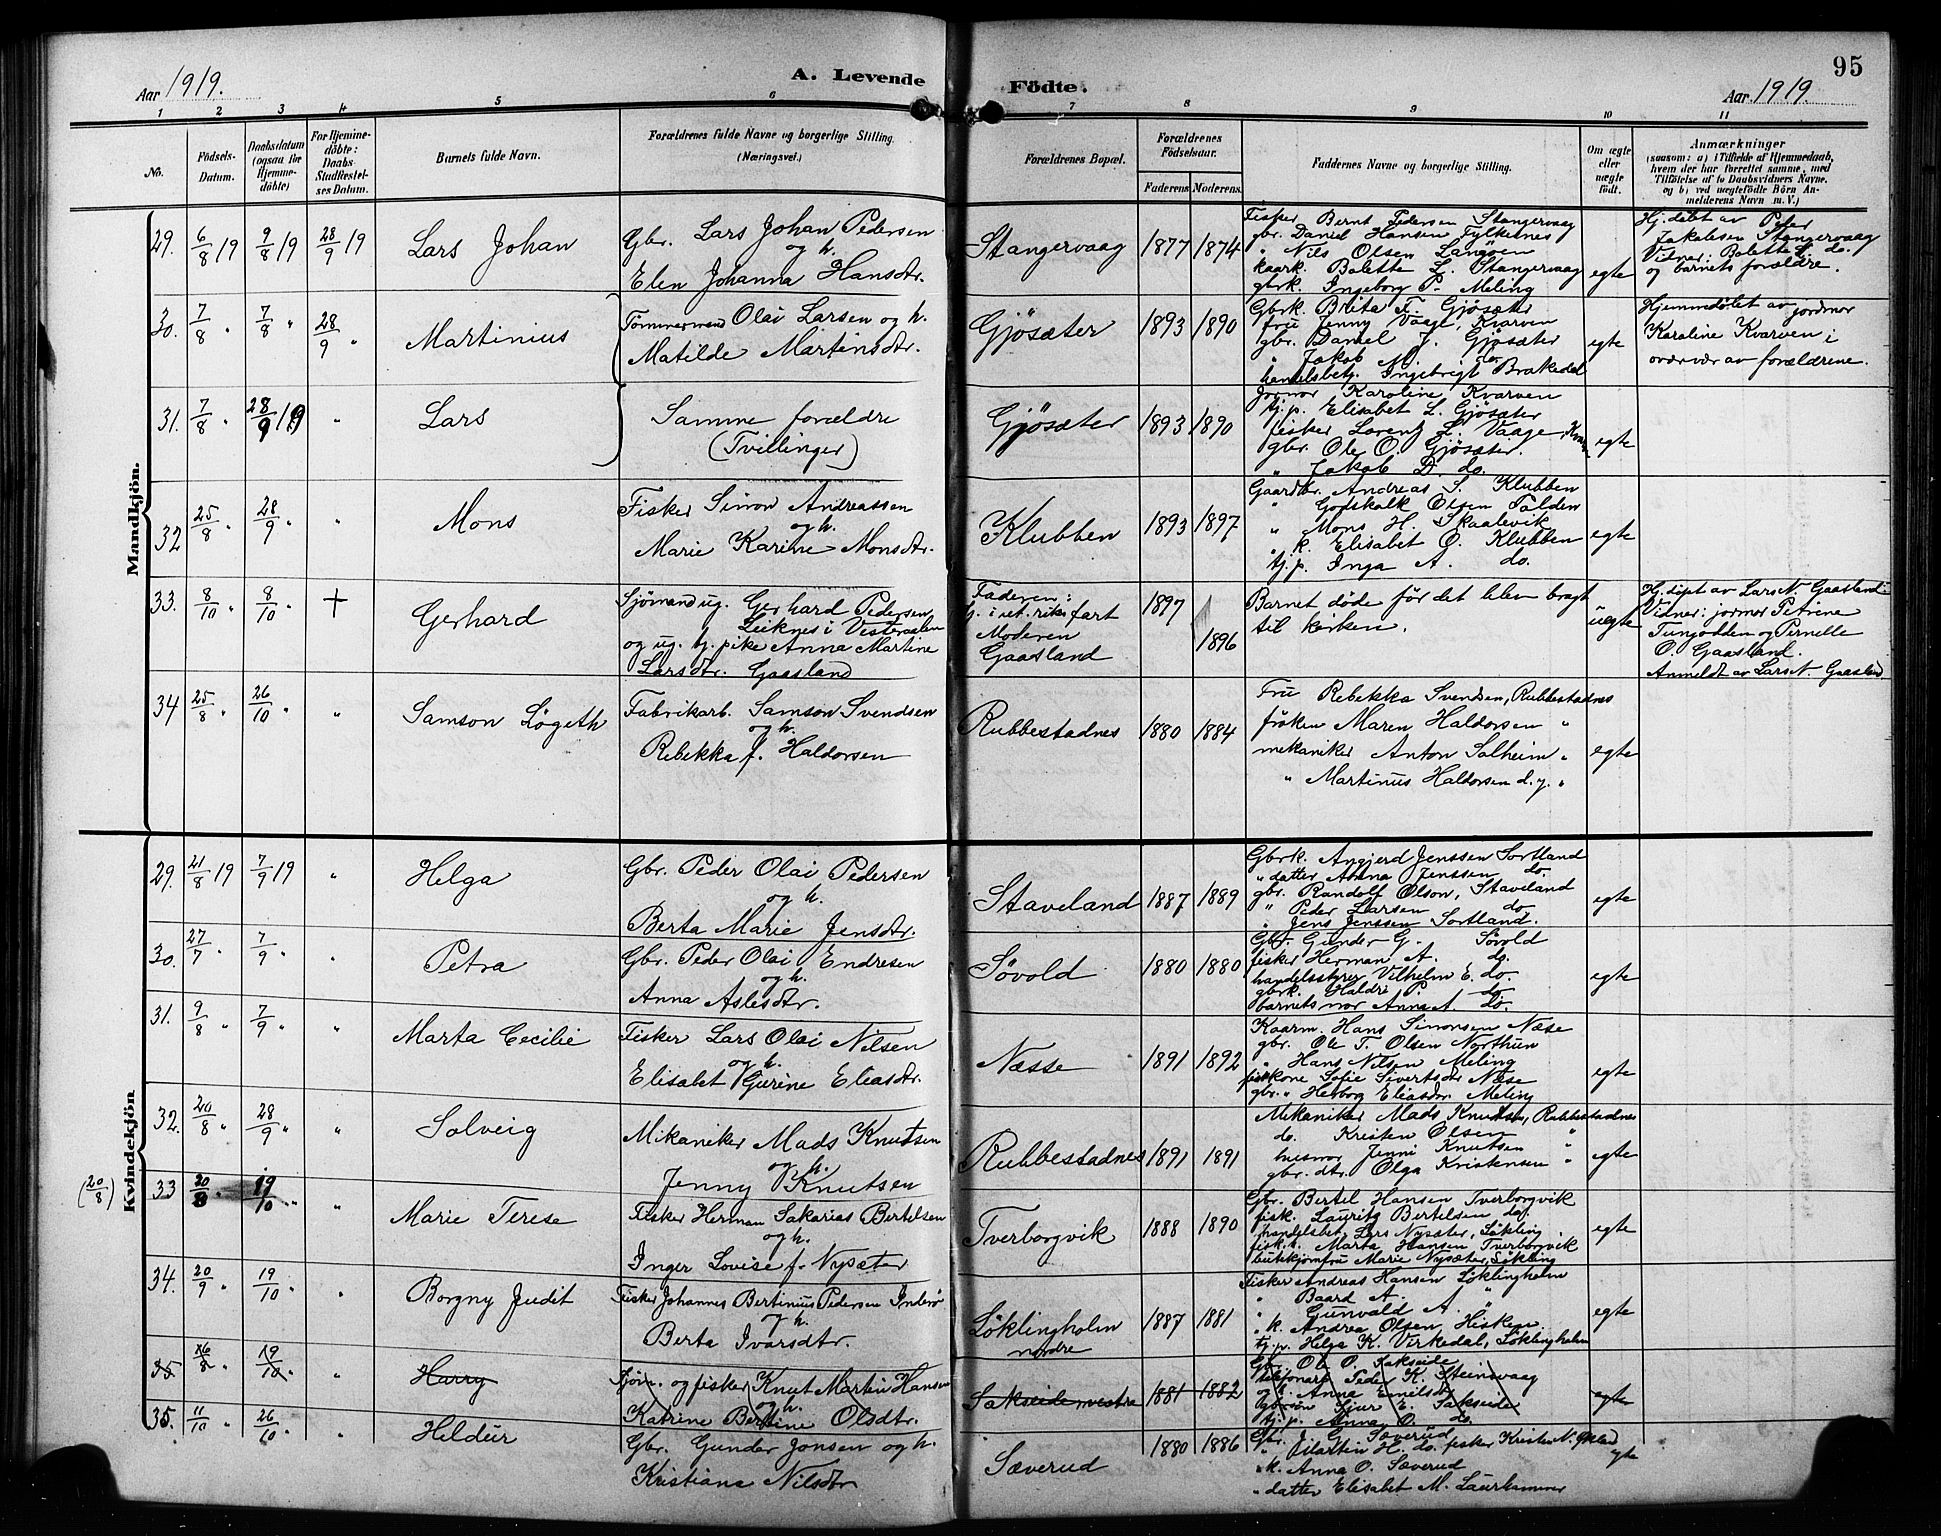 95
Aar 1919.
A. Levende
Födte.
Aar 1919.
1 2 3 4 5 6 7 8 9 10 11
No.
Födsels-Datum.
Daabsdatum (ogsaa for Hjemme-döbte)
For Hjemme-döbte: Daabs-Stadfæstel-ses Datum.
Barnets fulde Navn.
Forældrenes fulde Navne og borgerlige Stilling.
(Næringsvei.)
Forældrenes Bopæl.
Forældrenes Födselsaar.
Faderens Moderens.
Faddernes Navne og borgerlige Stilling.
Om ægte eller uægte födt.
Anmærkninger
(saasom: a) i Tilfælde af Hjemmedaab,
hvem der har forrettet samme, med
Tilföielse af to Daabsvidners Navne,
og b) ved uægtefödte Börn An-
melderens Navn m. V.)
Mandkjön.
29. 6/8 19 9/8 19 28/9 19 Lars Johan
Gbr. Lars Johan Pedersen
og h.
Elen Johanna Hansdtr.
Stangervaag 1877 1874
Fisker Bernt Pedersen Stangervaag
gbr. Daniel Hansen Fylkesnes
" Nils Olsen Langöen
kaark. Bolette L. Stangervaag
gbrk. Ingeborg P. Meling
egte
Hj. döbt av Peter
Jakobsen Stangervaag
Vidner: Bolette L. do.
og barnets forældre.
30. 7/8 " 7/8 " 28/9 " Martinius
Tömmermand Olai Larsen og h.
Matilde Martensdtr.
Gjösæter 1893 1890
Gbrk. Brita F. Gjösæter
fru Jenny Vaage, Kvarven
gbr. Daniel J. Gjösæter
" Jakob M. do.
handelsbetj. Ingebrigt Brakedal
egte
Hjemmedöbt av jordmor
Karoline Kvarven i
overvær av forældrene.
31. 7/8 " 28/9 19 " Lars
Samme forældre
(Tvillinger)
Gjösæter 1893 1890
Jormor Karoline Kvarven
tj.p. Elisabet L. Gjösæter
fisker Lorentz L. Vaage,
gbr. Ole O. Gjösæter.
" Jakob D. do.
egte
32 25/8 " 28/9 " " Mons
Fisker Simon Andreassen
og h.
Marie Karine Monsdtr.
Klubben 1893 1897
Gaardbr. Andreas S. Klubben
" Godskalk Olsen Folden
" Mons H. Skaalevik
" k. Elisabet O. Klubben
tj.p. Inga A. do.
egte
33. 8/10 " 8/10 " + Gerhard
Sjömand ug. Gerhard Pedersen
Leiknes i Vesteraalen
og ug. tj. pike Anna Martine
Larsdtr. Gaasland
Faderen:
i ut. riks fart
Moderen
Gaasland
1897
1896
Barnet döde för det blev bragt
til kirken.
uegte
Hj. döpt av Lars N. Gaasland:
Vidner: jormor Petrine
Tungodden og Pernelle
O. Gaasland.
Anmeldt av Lars N. Gaasland
34 25/8 " 26/10 " " Samson Lögeth
Fabrikarb. Samson Svendsen
og h.
Rebekka f. Haldorsen
Rubbestadnes 1880 1884
Fru Rebekka Svendsen, Rubbestadnes
fröken Maren Haldorsen "
mekaniker Anton Solheim "
" Martinus Haldorsen d.y. "
egte
Kvindekjön
29. 21/8 19 7/9 19 " Helga
Gbr. Peder Olai Pedersen
og h.
Berta Marie Jensdtr.
Staveland 1887 1889
Gbrk. Angjerd Jenssen Sortland
" datter Anna Jenssen do.
gbr. Randolf Olson, Staveland
" Peder Larsen do
" Jens Jenssen Sortland.
egte
30. 27/7 " 7/9 " " Petra
Gbr. Peder Olai Endresen
og h.
Anna Aslesdtr.
Sövold 1880 1880
Gbr. Gunder G. Sövold
fisker Herman A. do.
handelsstyrer Vilhelm E. do.
gbrk. Haldri P. do
barnets mor Anna A. do.
egte
31. 9/8 " 7/9 " " Marta Cecilie
Fisker Lars Olai Nilsen
og h.
Elisabet Gurine Eliasdtr.
Næsse 1891 1892
Kaarm. Hans Simonsen Næse
gbr. Ole T. Olsen Northun
" Hans Nilsen Meling
fiskkone Sofie Sivertsdtr Næse
gbr. " Herborg Eliasdtr Meling
egte
32. 20/8 " 28/9 " " Solveig
Mikaniker Mads Knutsen
og h.
Jenny Knutsen
Rubbestadnes 1891 1891
Mekaniker Mads Knudsen, Rubbestadnes
do. Kristen Olsen "
husmor Jenni Knutsen "
gbr. dtr. Olga Kristensen "
egte
(20/8) 33 20/8 " 19/10 " " Marie Terese
Fisker Herman Sakarias Bertelsen
og h.
Inger Lovise f. Nysæter
Tverborgvik 1888 1890
Gbr. Bertel Hansen Tverborgvik
fisk. Laurits Bertelsen do.
handelsbet. Lars Nysæter, Lökling
fisk.k. Marta Hansen Tverborgvik
butikkjomfru Marie Nysæter, Lökling
egte
34. 20/9 " 19/10 " " Borgny Judit
Fisker Johannes Bertinius Pedersen Inderö
og h.
Berta Ivarsdtr.
Löklingholm
nordre
1887 1881
Fisker Andreas Hansen Löklingholm
" Baard A. "
" Gunvald A. "
" k. Andrea Olsen, Hisken
tj.p. Helga K. Virkedal, Löklingholm
egte
35 16/8 " 19/10 " " Harry
Sjöm. og fisker Knut Martin Hansen
og h.
Katrine Bertine Olsdtr.
Sakseide vestre 1881 1882
Gbr. Ole O. Sakseide
telefonarb. Peder K. Steinsvaag
og h. Anna Emilsdtr
gbrsön Sjur E. Sakseide
tj.p. Anna O. do.
egte
35. 11/10 " 26/10 " " Heldur
Gbr. Gunder Jonsen og h.
Kristiana Nilsdtr
Sæverud 1880 1886
Gbr. J. G. Sæverud
" Martin H. do. fisker Kristen N.
" k. Anna O. Sæverud
" datter Elisabet M. Laurhammer
egte